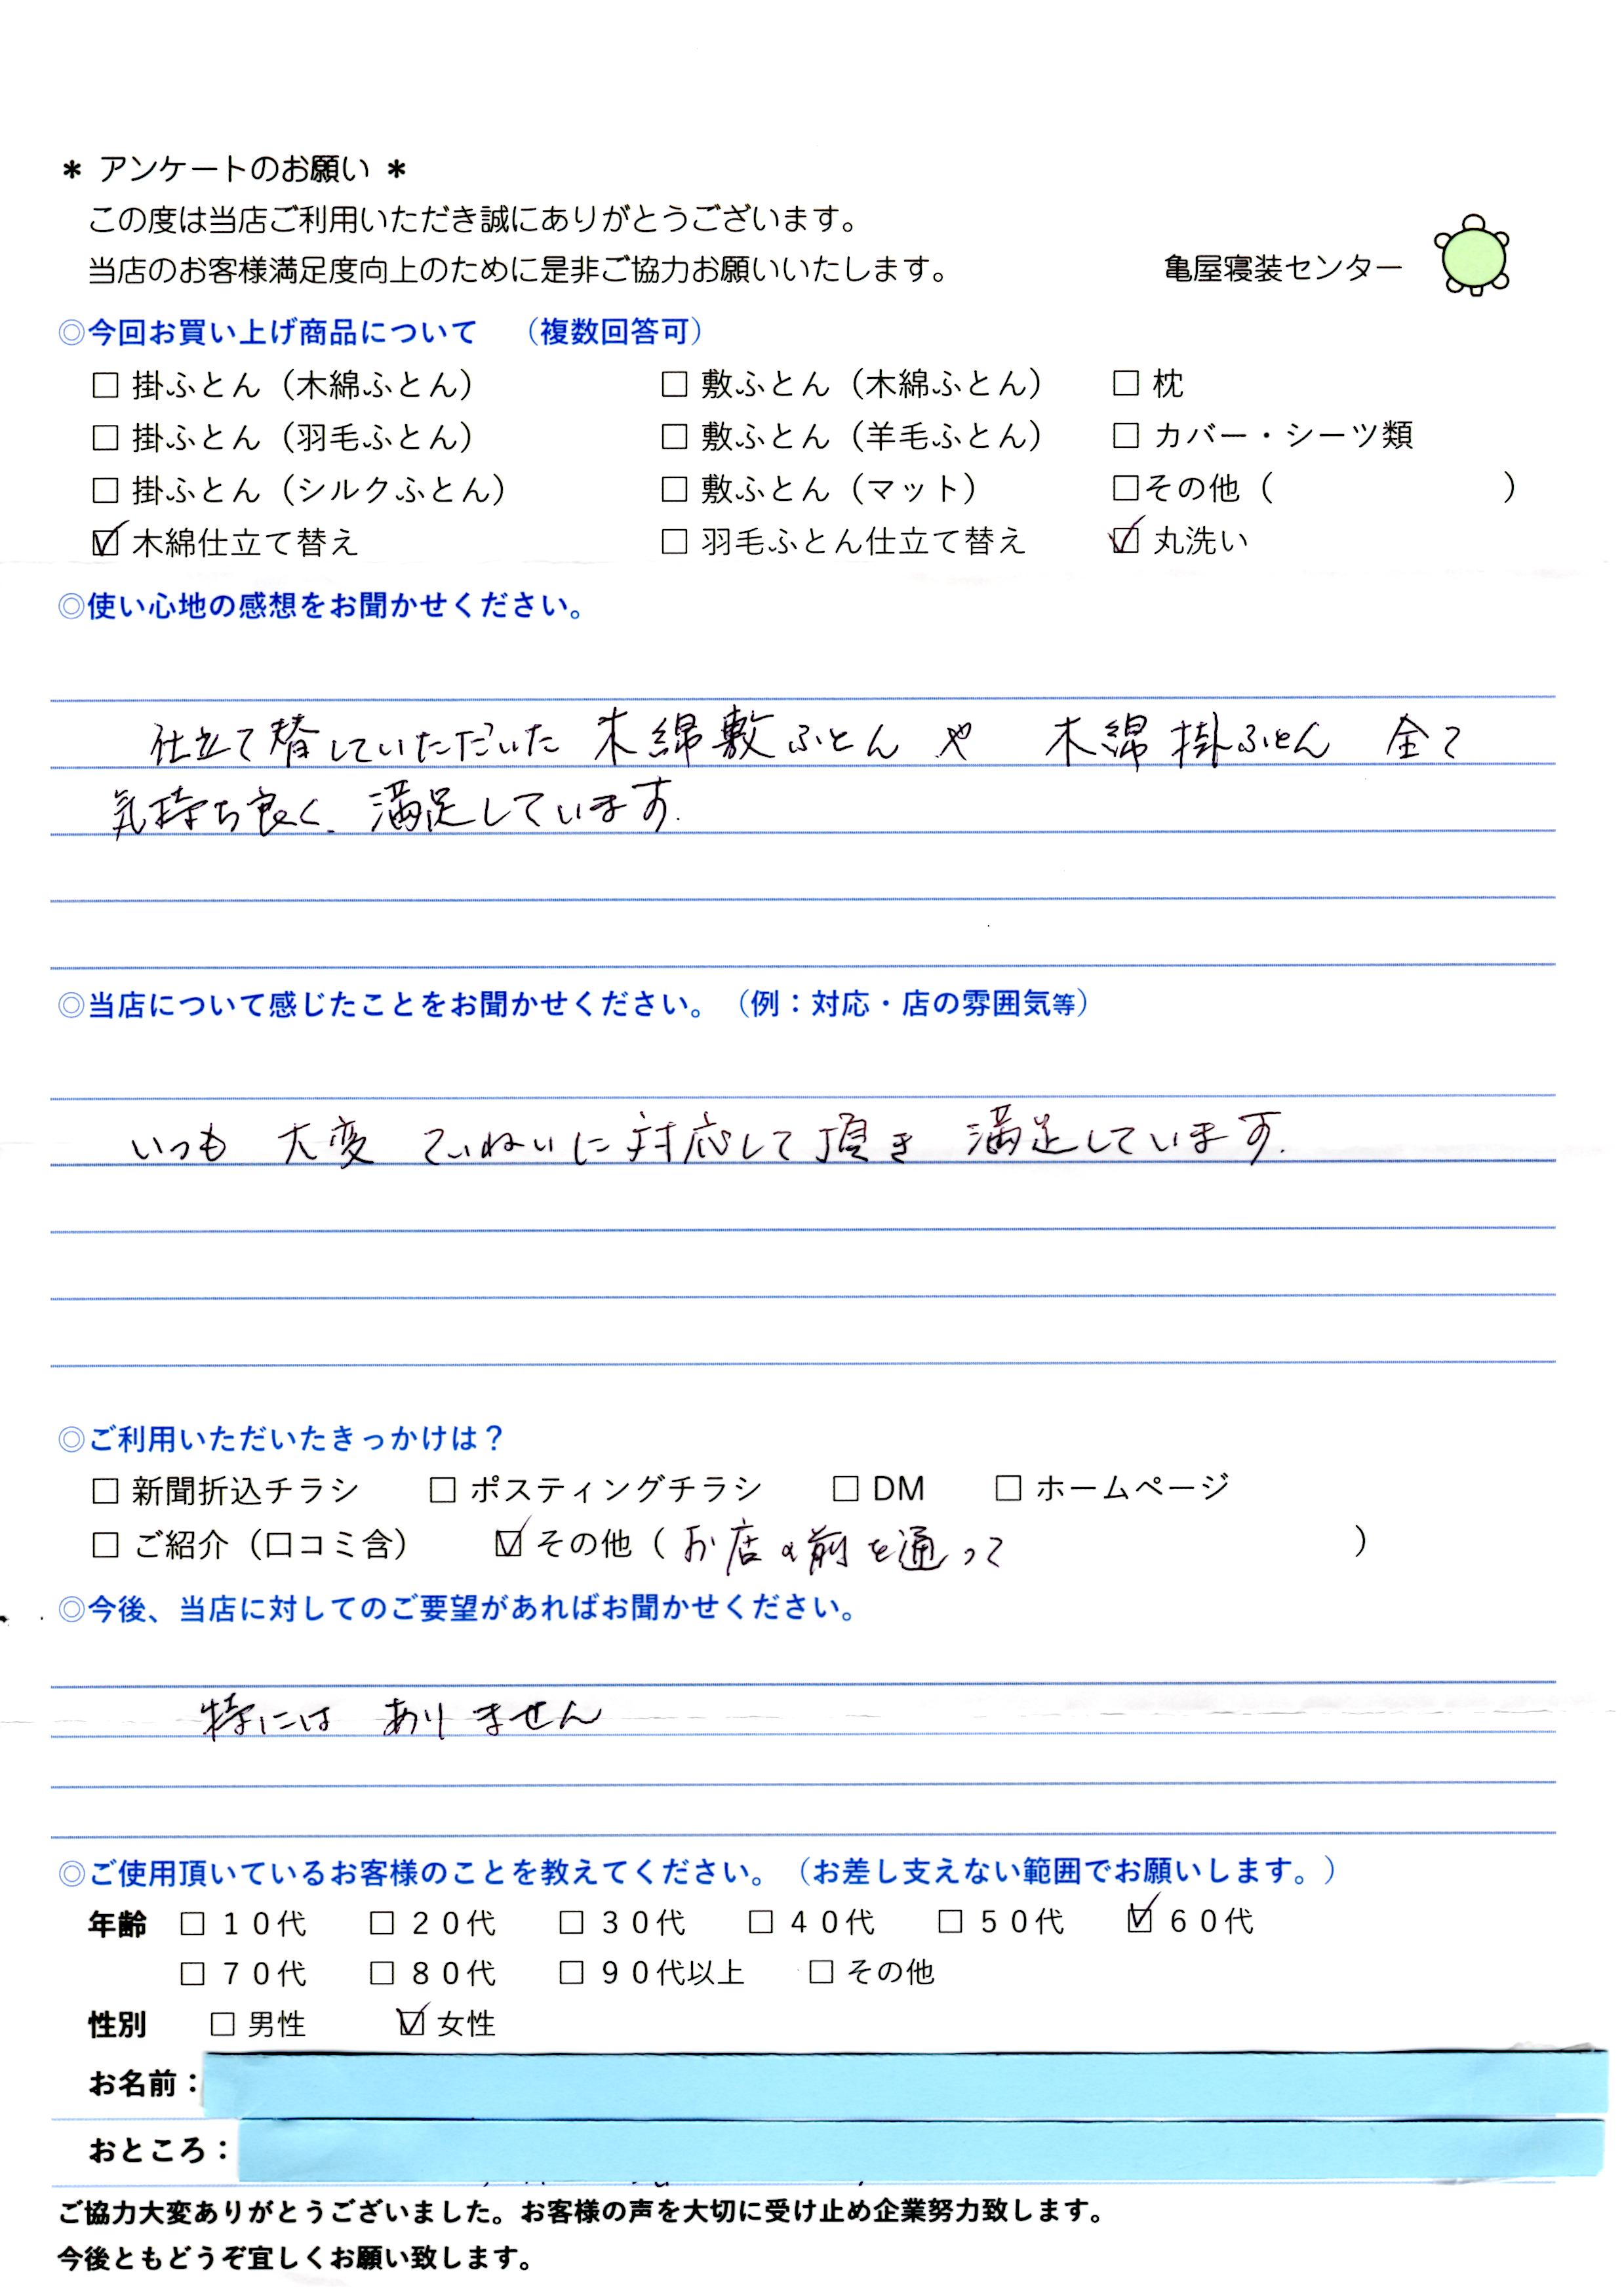 ＊ アンケートのお願い ＊
この度は当店ご利用いただき誠にありがとうございます。
当店のお客様満足度向上のために是非ご協力お願いいたします。 亀屋寝装センター
◎今回お買い上げ商品について （複数回答可）
□ 掛ふとん（木綿ふとん） □ 敷ふとん（木綿ふとん） □ 枕
□ 掛ふとん（羽毛ふとん） □ 敷ふとん（羊毛ふとん） □ カバー・シーツ類
□ 掛ふとん（シルクふとん） □ 敷ふとん（マット） □その他（ ）
☑ 木綿仕立て替え □ 羽毛ふとん仕立て替え ☑ 丸洗い
◎使い心地の感想をお聞かせください。
仕立て替していただいた 木綿敷ふとん や 木綿掛ふとん 全て
気持ち良く、満足しています.
◎当店について感じたことをお聞かせください。（例：対応・店の雰囲気等）
いつも 大変 ていねいに対応して頂き 満足しています.
◎ご利用いただいたきっかけは？
□ 新聞折込チラシ □ ポスティングチラシ □ DM □ ホームページ
□ ご紹介（口コミ含） ☑ その他（ お店の前を通って ）
◎今後、当店に対してのご要望があればお聞かせください。
特には ありません
◎ご使用頂いているお客様のことを教えてください。（お差し支えない範囲でお願いします。）
年齢 □ １０代 □ ２０代 □ ３０代 □ ４０代 □ ５０代 ☑ ６０代
□ ７０代 □ ８０代 □ ９０代以上 □ その他
性別 □ 男性 ☑ 女性
お名前：
おところ：
ご協力大変ありがとうございました。お客様の声を大切に受け止め企業努力致します。
今後ともどうぞ宜しくお願い致します。